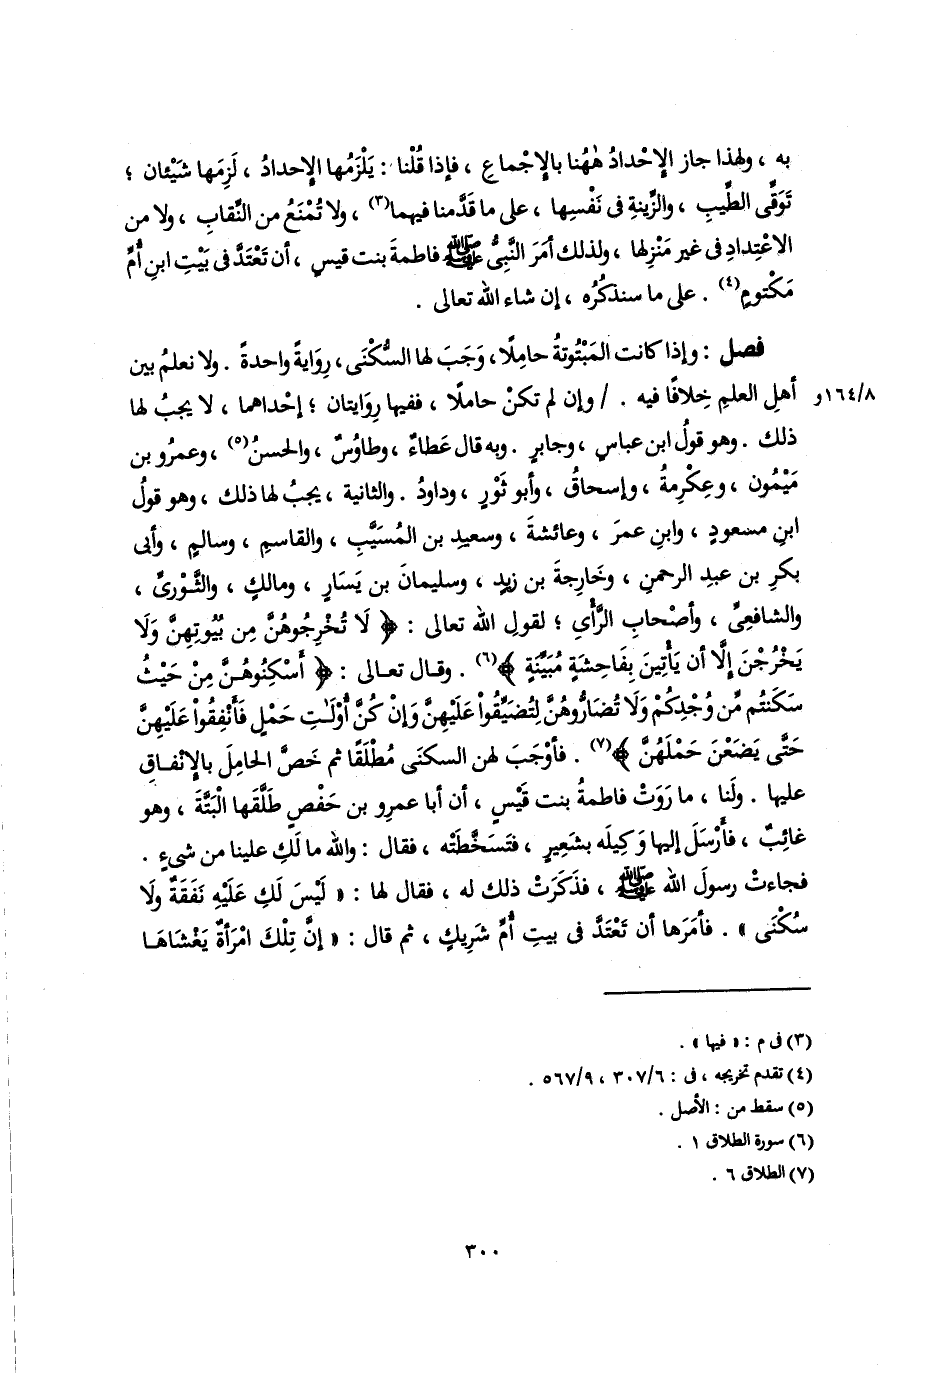 به ، ولهذا جاز الإِحْدادُ هٰهُنا بالإِجْماعِ ، فإذا قُلْنا : يَلْزَمُها الإِحدادُ ، لَزِمَها شَيْئان ؛
تَوَقِّى الطِّيبِ ، والزِّينةِ فى نَفْسِها ، على ما قَدَّمنا فيهما(٣) ، ولا تُمْنَعُ من النِّقابِ ، ولا من
الاعْتِدادِ فى غير مَنْزِلها ، ولذلك أمَرَ النَّبِىُّ ﷺ فاطمةَ بنت قيسٍ ، أن تَعْتَدَّ فى بَيْتِ ابنِ أُمِّ
مَكْتومٍ(٤) . على ما سنذكُرُه ، إن شاء الله تعالى .
فصل : وإذا كانت المَبْتُوتةُ حامِلًا، وَجَبَ لها السُّكْنَى، رِوَايةً واحدةً . ولا نعلمُ بين
أهلِ العلمِ خِلافًا فيه . / وإن لم تكنْ حاملًا ، ففيها رِوَايتان ؛ إحْداهما ، لا يجبُ لها
١٦٤/٨و
ذلك . وهو قولُ ابن عباسٍ ، وجابرٍ . وبه قال عَطاءٌ ، وطاوُسٌ ، والحسنُ(٥) ، وعمرُو بن
مَيْمُون ، وعِكْرِمةُ ، وإسحاقُ ، وأبو ثَوْرٍ ، وداودُ . والثانية ، يجبُ لها ذلك ، وهو قولُ
ابنِ مسعودٍ ، وابنِ عمرَ ، وعائشةَ ، وسعيدِ بن المُسَيَّبِ ، والقاسمِ ، وسالمٍ ، وأبى
بكرِ بن عبدِ الرحمنِ ، وخَارِجةَ بن زيدٍ ، وسليمانَ بن يَسَارٍ ، ومالكٍ ، والثَّوْرِىِّ ،
والشافعىِّ ، وأصْحابِ الرَّأْىِ ؛ لقولِ الله تعالى : ﴿ لَا تُخْرِجُوهُنَّ مِن بُيُوتِهِنَّ وَلَا
يَخْرُجْنَ إِلَّا أن يَأْتِينَ بِفَاحِشَةٍ مُبَيِّنَةٍ ﴾(٦) . وقـال تعـالى : ﴿ أَسْكِنُوهُـنَّ مِنْ حَيْثُ
سَكَنتُم مِّن وُجْدِكُمْ وَلَا تُضَارُّوهُنَّ لِتُضَيِّقُواْ عَلَيْهِنَّ وَإِنْ كُنَّ أُوْلَـٰتِ حَمْلٍ فَأَنْفِقُواْ عَلَيْهِنَّ
حَتَّى يَضَعْنَ حَمْلَهُنَّ ﴾(٧) . فأوْجَبَ لهن السكنَى مُطْلَقًا ثم خَصَّ الحامِلَ بالإِنْفـاقِ
عليها . ولَنا ، ما رَوَتْ فاطمةُ بنت قَيْسٍ ، أن أبا عمرِو بن حَفْصٍ طَلَّقَها الْبَتَّةَ ، وهو
غائِبٌ ، فأَرْسَلَ إليها وَكِيلَه بشَعِيرٍ ، فتَسَخَّطَتْه ، فقال : والله ما لَكِ علينا من شىءٍ .
فجاءتْ رسولَ الله ﷺ ، فذَكَرَتْ ذلك له ، فقال لها : « لَيْسَ لَكِ عَلَيْهِ نَفَقَةٌ ولَا
سُكْنَى » . فأمَرَها أن تَعْتَدَّ فى بيتِ أُمِّ شَرِيكٍ ، ثم قال : « إنَّ تِلْكَ امْرَأةٌ يَغْشَاهَـا
(٣) فى م : « فيها » .
(٤) تقدم تخريجه ، فى : ٣٠٧/٦ ، ٥٦٧/٩ .
(٥) سقط من : الأصل .
(٦) سورة الطلاق ١ .
(٧) الطلاق ٦ .
٣٠٠